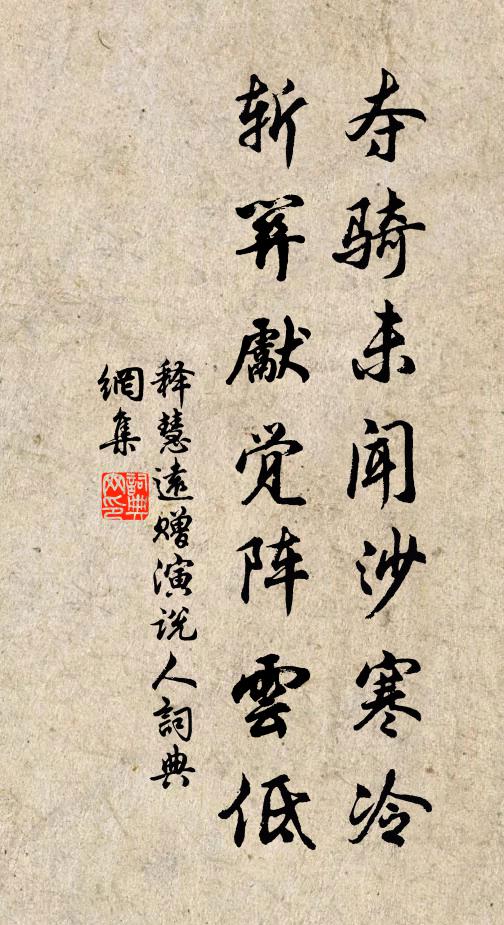 夺骑未闻沙寒冷
斩獻觉阵雲低
释慧遠赠演说人詞典
網集
詞典
网印